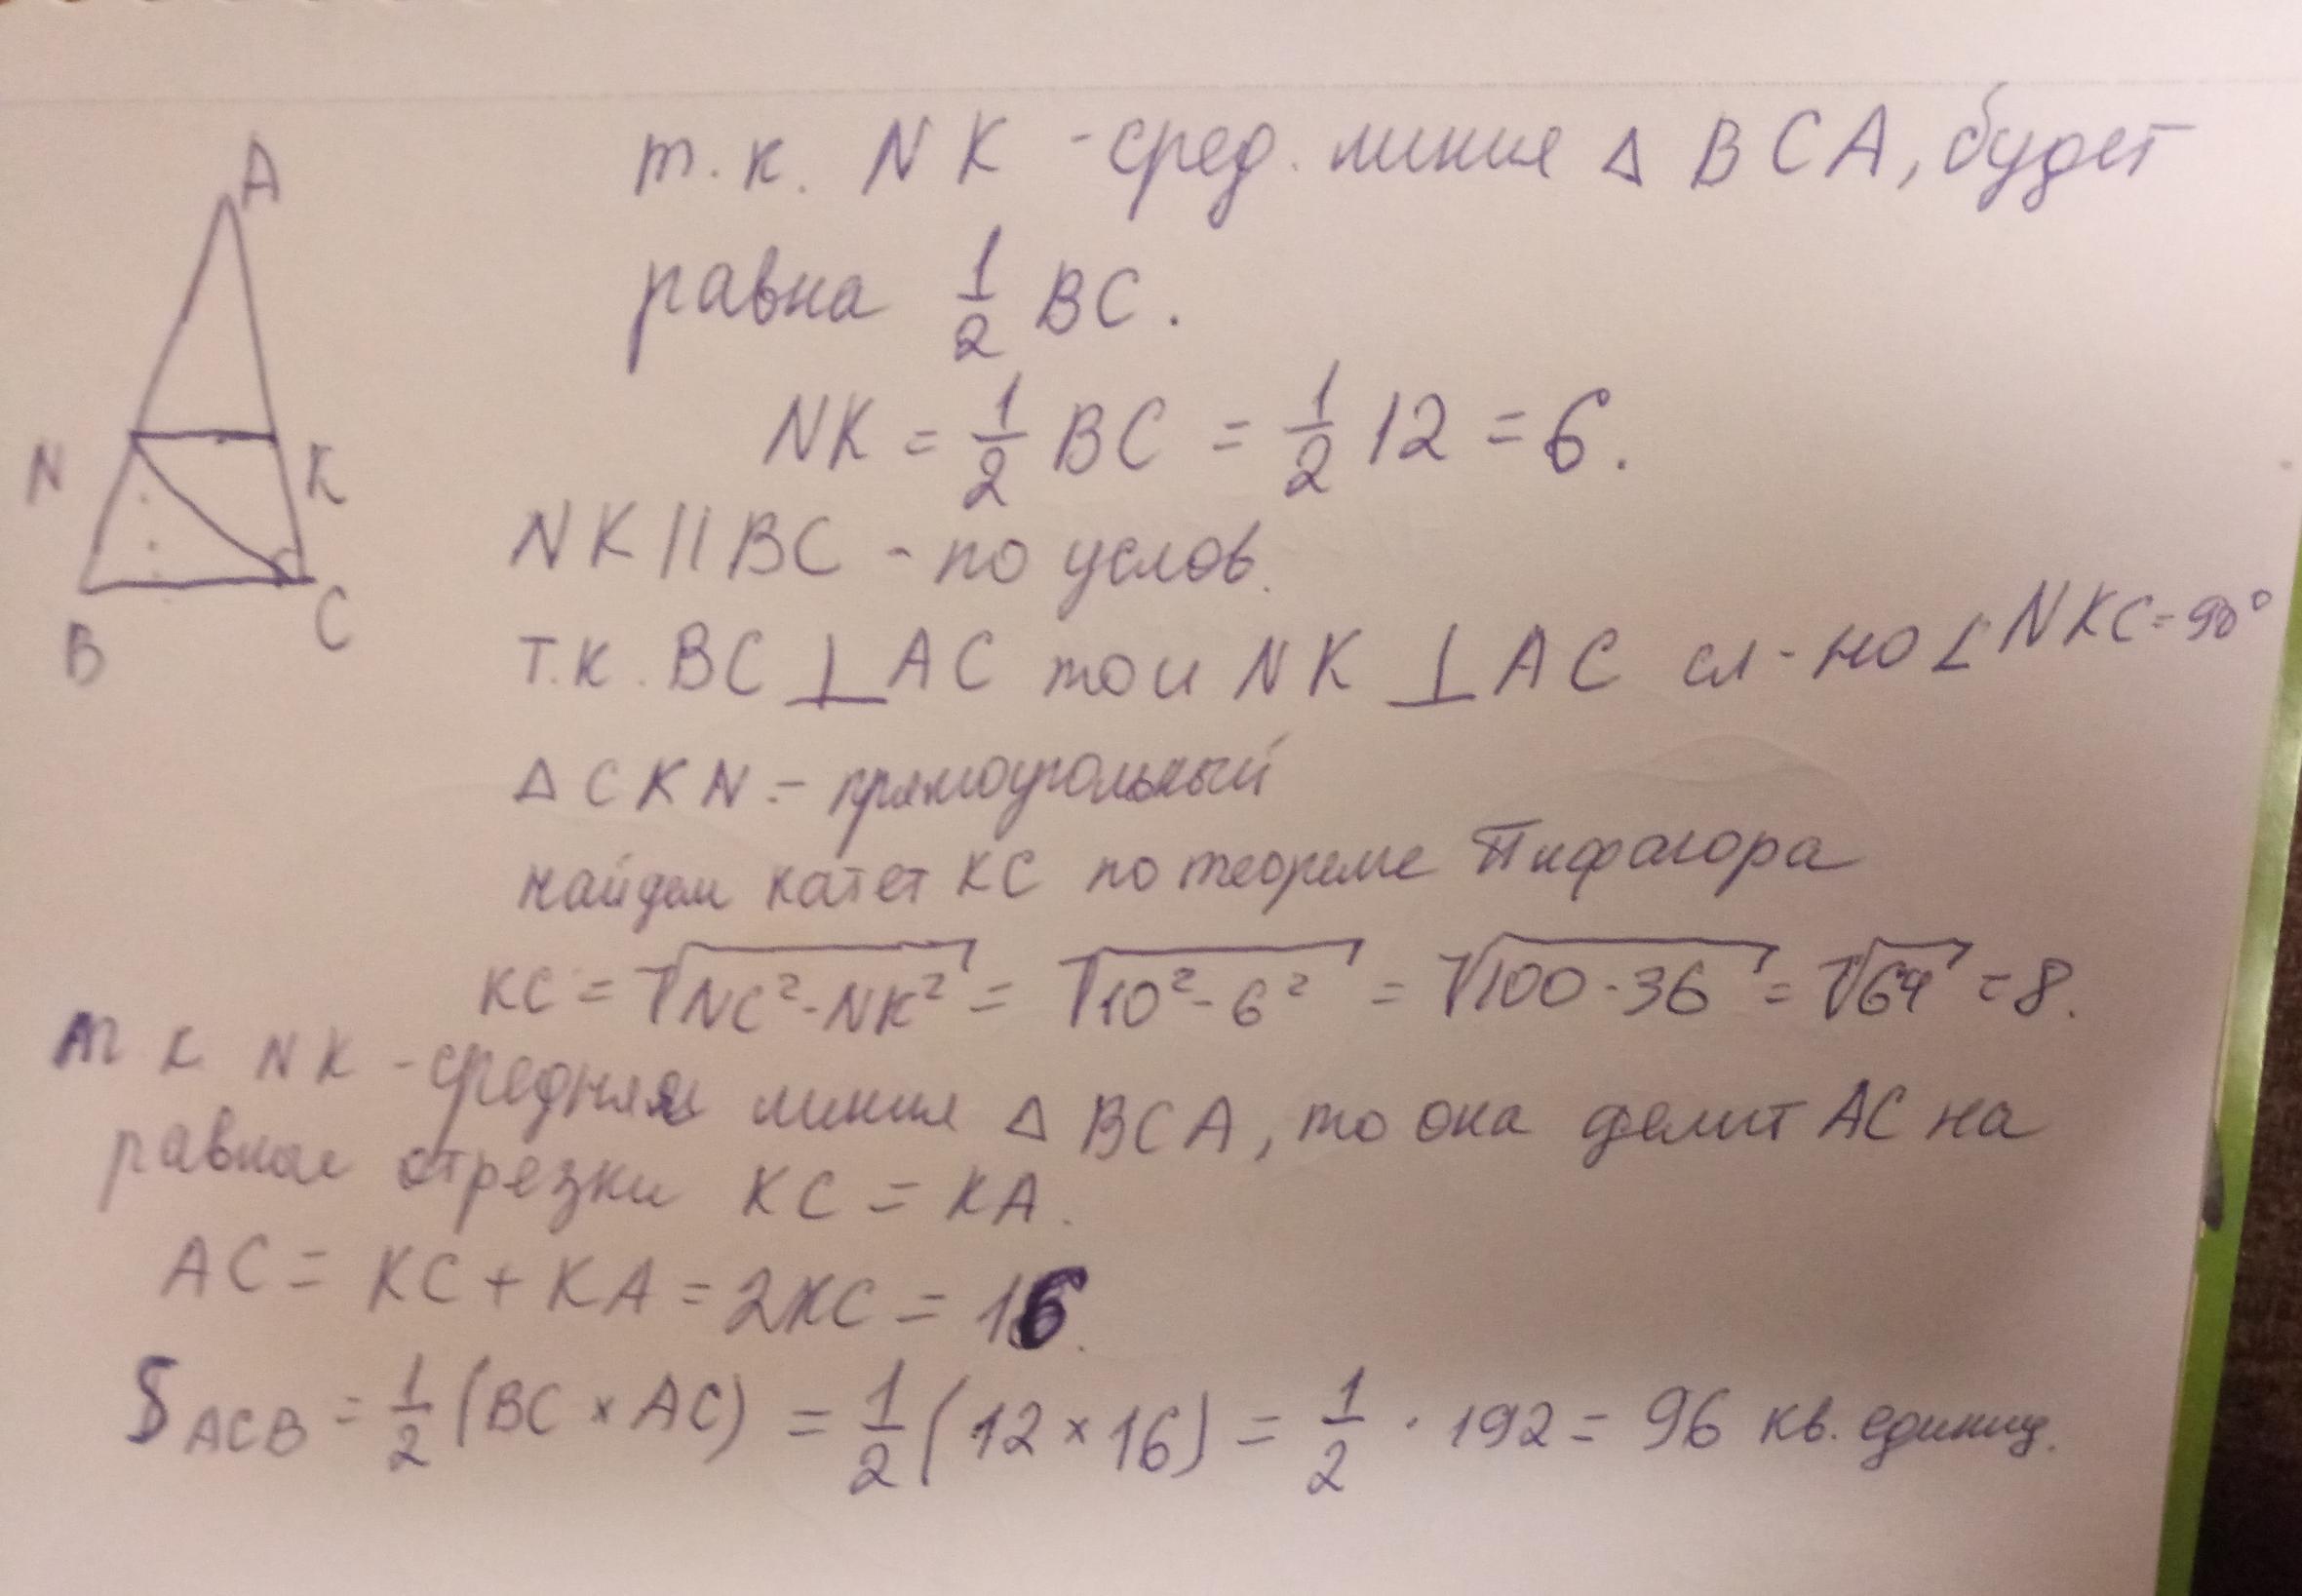 A
N
K
B
C
т.к. NK - сред. линия △ BCA, будет
равна 1/2 BC.
NK = 1/2 BC = 1/2 12 = 6.
NK || BC - по услов.
т.к. BC ⊥ AC то и NK ⊥ AC сл-но ∠NKC = 90°
△ CKN - прямоугольный
найдем катет KC по теореме Пифагора
KC = √NC² - NK² = √10² - 6² = √100 - 36 = √64 = 8.
т к NK - средняя линия △ BCA, то она делит AC на
равные отрезки KC = KA.
AC = KC + KA = 2KC = 16.
S ACB = 1/2 (BC × AC) = 1/2 (12 × 16) = 1/2 · 192 = 96 кв. единиц.